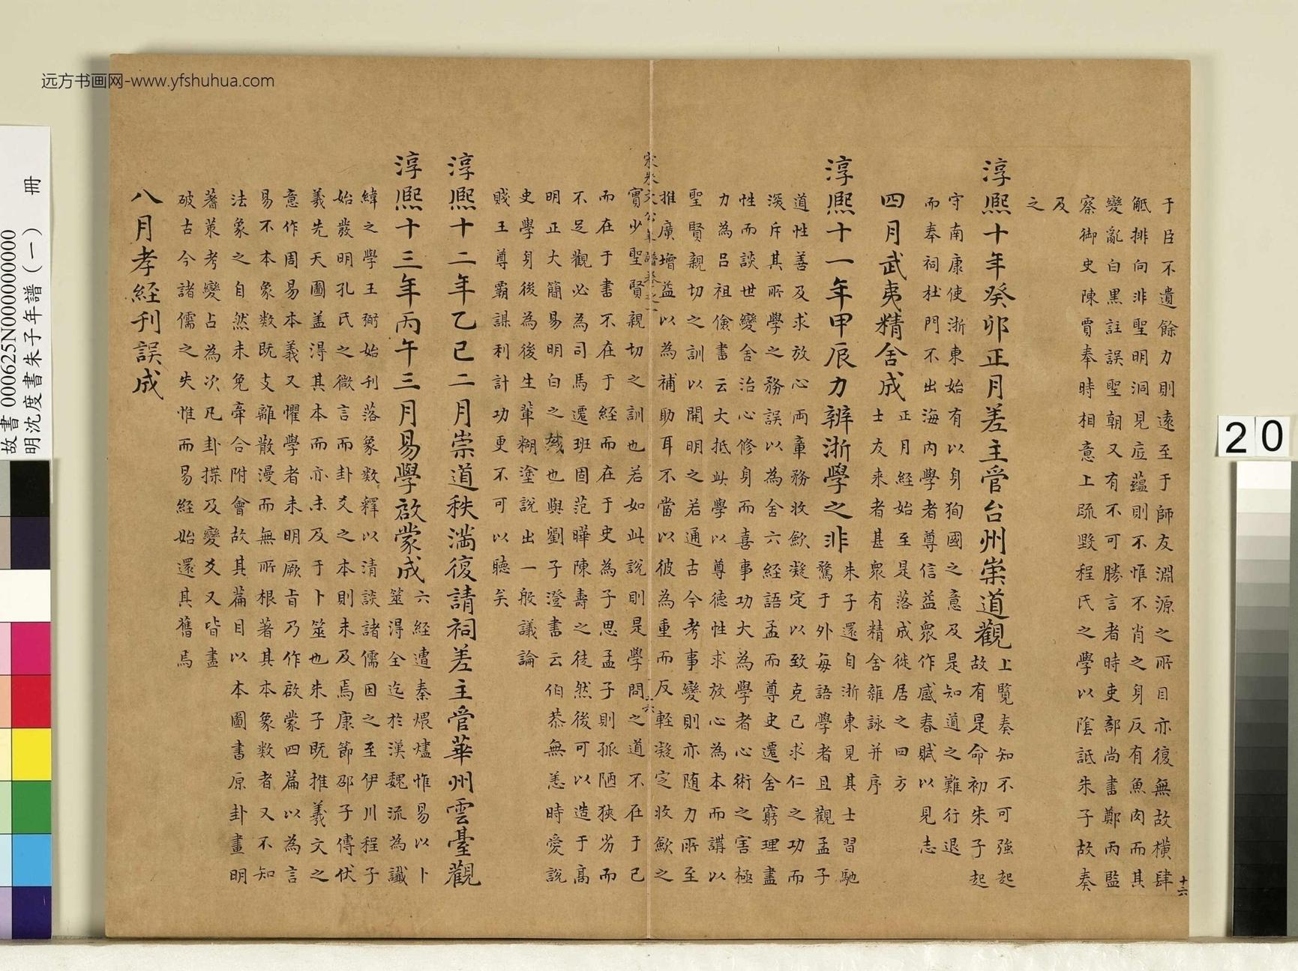 远方书画网-www.yfshuhua.com
于臣不遺餘力則遠至于師友淵源之所目亦復無故横肆
觝排向非聖明洞見底蘊則不惟不肖之身反有魚肉而其
變亂白黒註誤聖朝又有不可勝言者時吏部尚書鄭丙監
察御史陳賈奉時相意上疏毀程氏之學以陰詆朱子故奏
及
之
淳熙十年癸卯正月差主管台州崇道觀上覧奏知不可強起
故有是命初朱子起
守南康使浙東始有以身狥國之意及是知道之難行退
而奉祠杜門不出海内學者尊信益衆作感春賦以見志
四月武夷精舍成正月經始至是落成徙居之四方
士友来者甚衆有精舍雜詠并序
淳熙十一年甲辰力辨浙學之非朱子還自浙東見其士習馳
騖于外每語學者且觀孟子
道性善及求放心两章務收歛凝定以致克己求仁之功而
深斥其所學之務誤以為舍六經語孟而尊史遷舍窮理盡
性而談世變舍治心修身而喜事功大為學者心術之害極
力為吕祖儉書云大抵此學以尊德性求放心為本而講以
聖賢親切之訓以開明之若通古今考事變則亦随力所至
推廣增益以為補助耳不當以彼為重而反輕凝定收歛之
宋朱文公年譜卷之一
實少聖賢親切之訓也若如此説則是學問之道不在于己
而在于書不在于經而在于史為子思孟子則孤陋狹劣而
不足觀必為司馬遷班固范曄陳壽之徒然後可以造于髙
明正大簡易明白之域也與劉子澄書云伯恭無恙時愛説
史學身後為後生輩糊塗説出一般議論
賤王尊霸謀利計功更不可以聽矣
淳熙十二年乙巳二月崇道秩満復請祠差主管華州雲臺觀
淳熙十三年丙午三月易學啟蒙成六經遭秦煨燼惟易以卜
筮得全迄於漢魏流為讖
緯之學王弼始刋落象數釋以清談諸儒因之至伊川程子
始發明孔氏之微言而卦爻之本則未及焉康節邵子傳伏
義先天圖盖得其本而亦未及于卜筮也朱子既推羲文之
意作周易本義又懼學者未明厥旨乃作啟蒙四篇以為言
易不本象数既支離散漫而無所根著其本象数者又不知
法象之自然未免牽合附會故其篇目以本圖書原卦畫明
蓍䇲考變占為次凡卦揲及變爻又皆盡
破古今諸儒之失惟而易經始還其舊焉
八月孝經刊誤成
十六
故書 000625N000000000
明沈度書朱子年譜(一) 冊
20